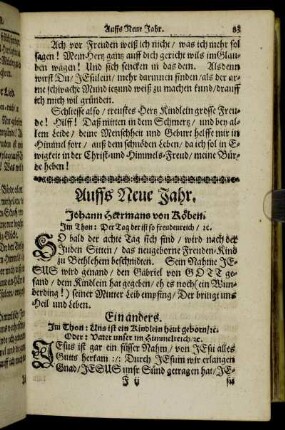 Auffs Neue Jahr. 83
Ach vor Freuden weiß ich nicht / was ich mehr sol
sagen! Mein Hertz gantz auff dich gericht wils im Glau-
ben wagen! Und sich sencken in das dein. Als denn
wirst Du / JEsulein / mehr darinnen finden / als der ar-
me schwache Mund jetzund weiß zu machen kund / drauff
ich mich wil gründen.
Schliesse also / treustes Herz Kindlein grosse Freu-
de! Hilff! Daß mitten in dem Schmertz / und bey al-
lem Leide / deine Menschheit und Geburt helffe mir in
Himmel fort / auß dem schnöden Leben / da ich sol in E-
wigkeit in der Christ- und Himmels-Freud / meine Bür-
de heben!
Auffs Neue Jahr.
Johann Heermans von Köben.
Im Thon: Der Tag der ist so freudenreich / ꝛc.
SO bald der achte Tag sich find / wird nach der
Jüden Sitten / das neugeborne Freuden-Kind
zu Bethlehem beschnidten. Sein Nahme JE-
SUS wird genand / den Gabriel von GOTT ge-
sand / dem Kindlein hat gegeben / eh es noch (ein Wun-
derding!) seiner Mutter Leib empfing / Der bringt uns
Heil und Leben.
Ein anders.
Im Thon: Uns ist ein Kindlein heut geborn / ꝛc.
Oder: Vater unser im Himmelreich / ꝛc.
JEsus ist gar ein süsser Nahm / von JEsu alles
Guts herkam :/: Durch JEsum wir erlangen
Gnad / JESUS unsre Sünd getragen hat / JE-
F ij